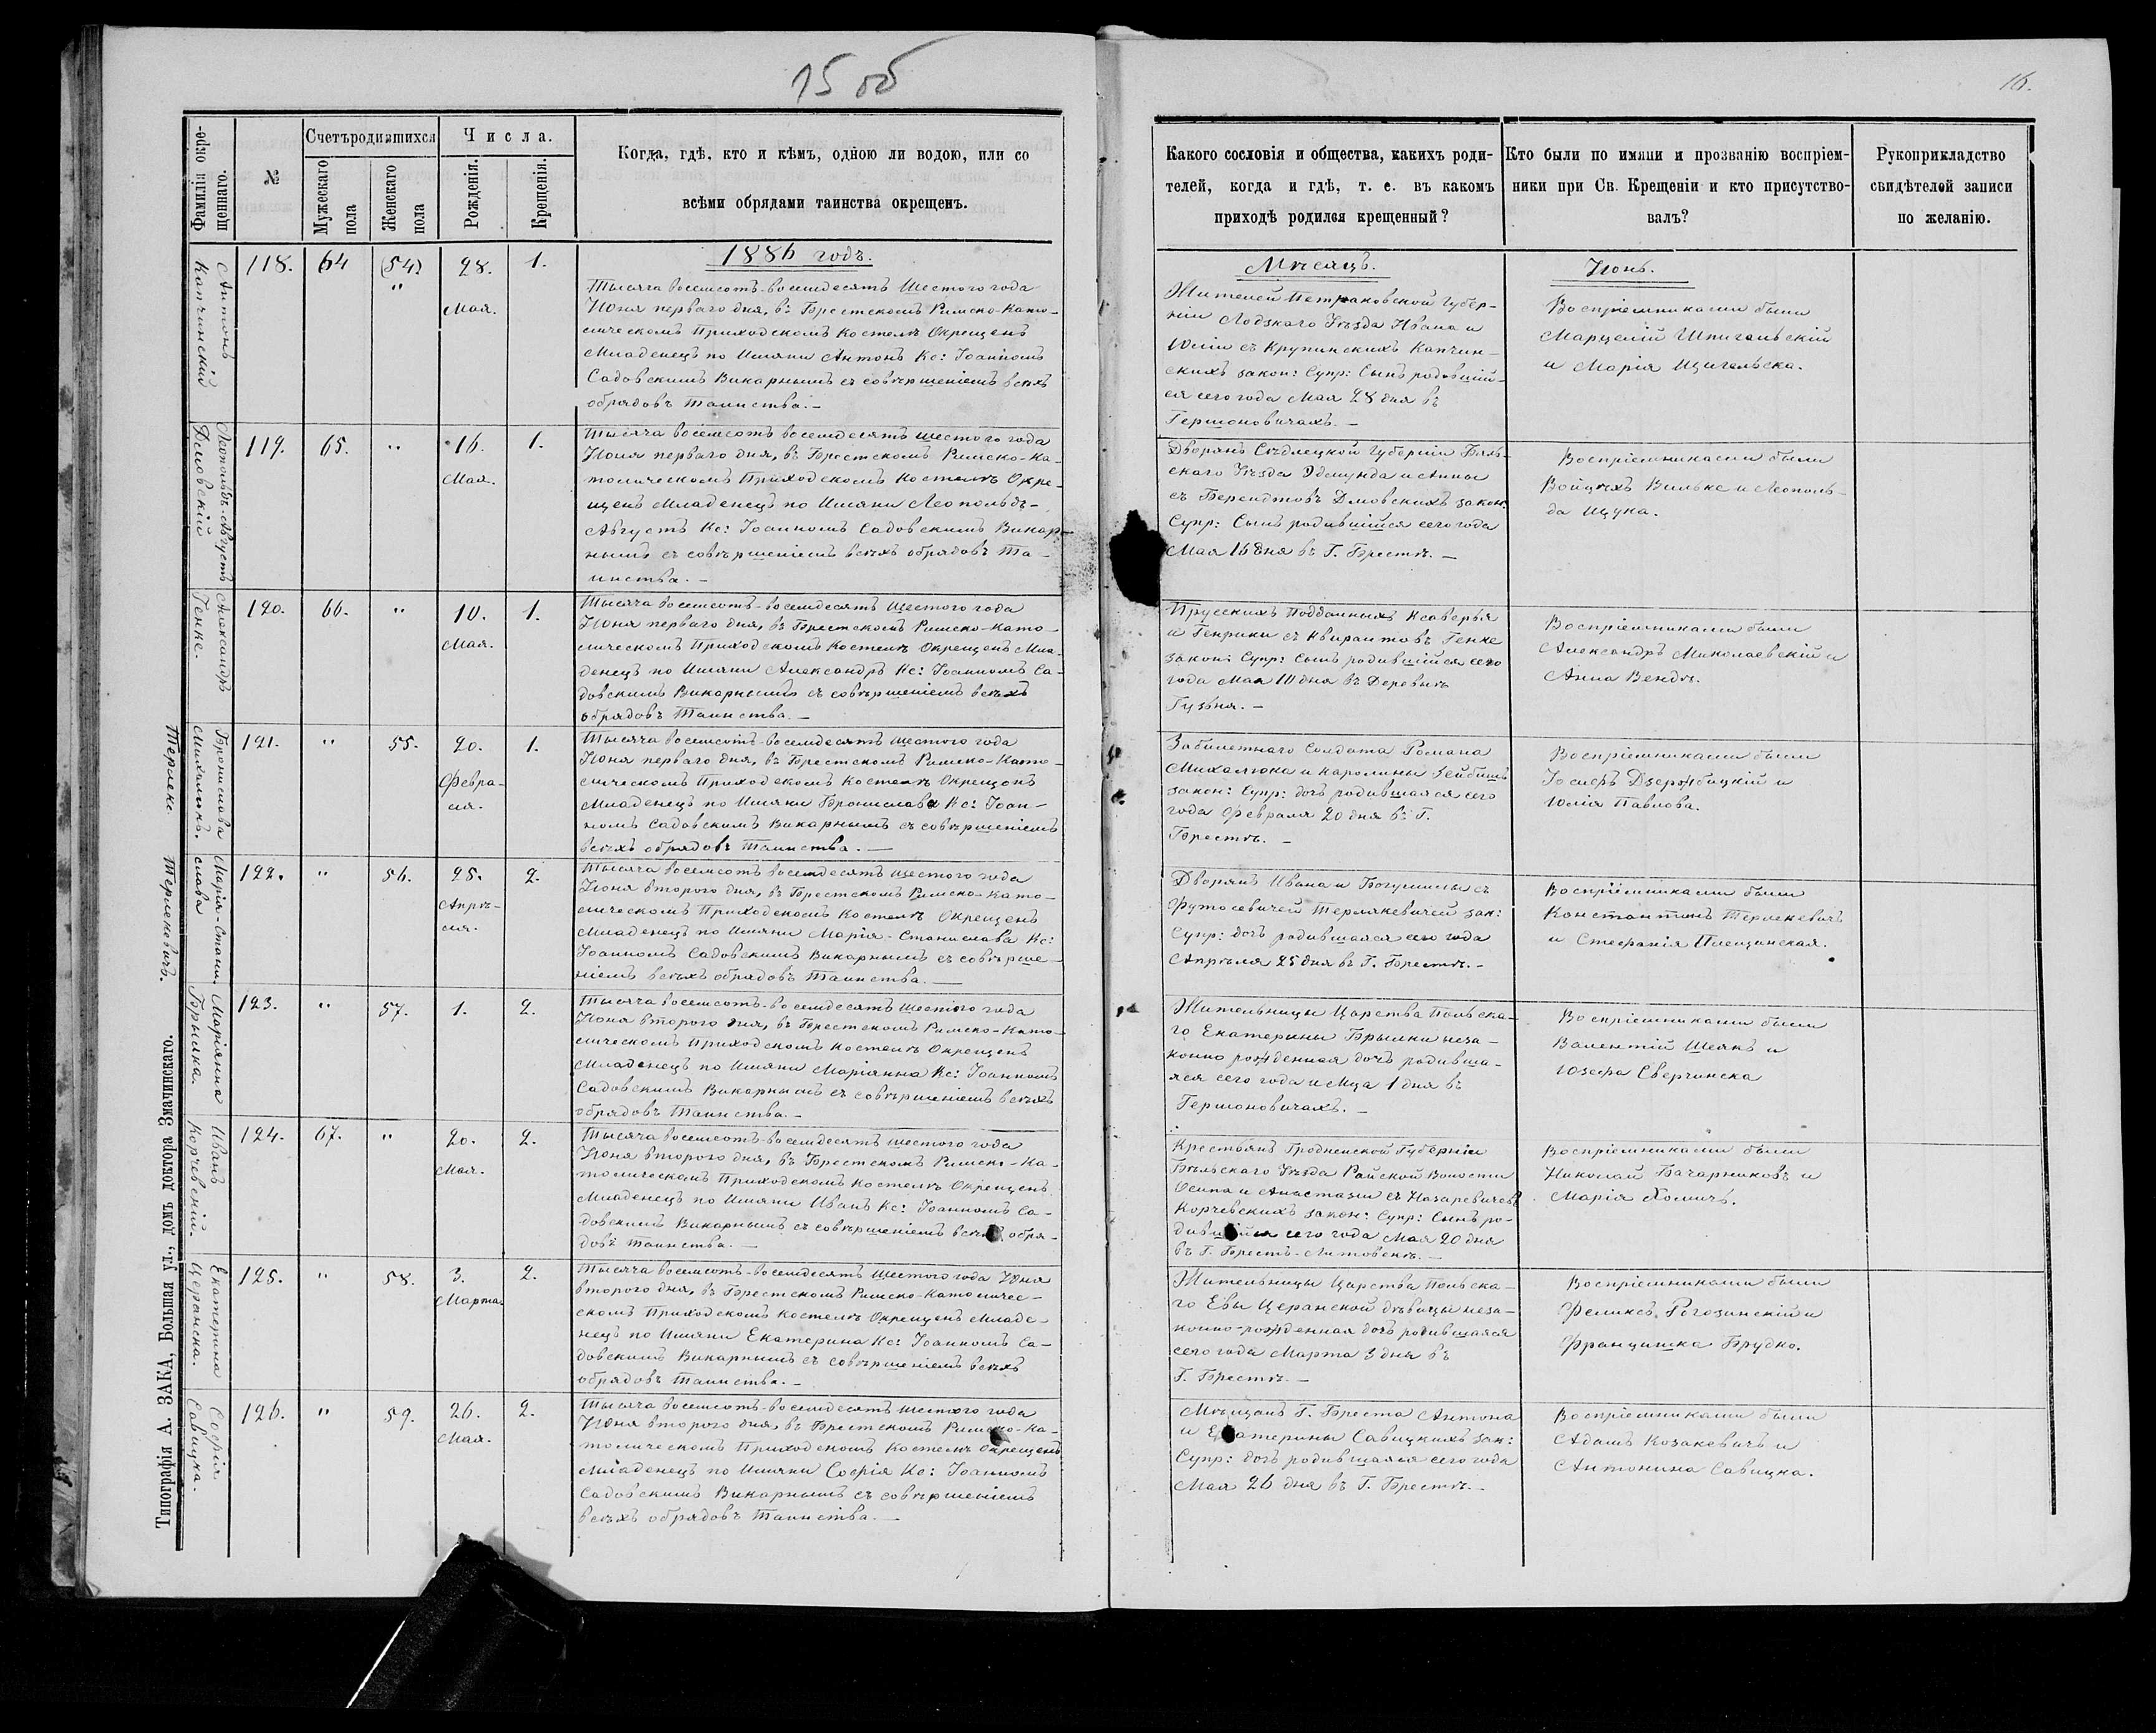 15 об
16.
Фамилія кре-
щеннаго.
№
Счетъ родившихся
Мужескаго
пола
Женскаго
пола
Числа.
Рожденія.
Крещенія.
Когда, гдѣ, кто и кѣмъ, одною ли водою, или со
всѣми обрядами таинства окрещенъ.
Какого сословія и общества, какихъ роди-
телей, когда и гдѣ, т. е. въ какомъ
приходѣ родился крещенный?
Кто были по имяни и прозванію воспріем-
ники при Св. Крещеніи и кто присутство-
валъ?
Рукоприкладство
свидѣтелей записи
по желанію.
1886 годъ.
Мѣсяцъ.
Іюнь.
Антонъ
Капчинскій
118.
64
(54)
"
28.
Мая.
1.
Тысяча восемсотъ-восемдесятъ Шестого года
Іюня перваго дня, въ Брестскомъ Римско-Като-
лическомъ Приходскомъ Костелѣ Окрещенъ
Младенецъ по Имяни Антонъ Кс: Іоанномъ
Садовскимъ Викарнымъ съ совѣршеніемъ всѣхъ
обрядовъ Таинства.-
Жителей Петраковской Губер-
ніи Лодзкаго Уѣзда Ивана и
Юліи съ Крупинскихъ Капчин-
скихъ закон: Супр: Сынъ родивший-
ся сего года Мая 28 дня въ
Гершоновичахъ.-
Воспріемниками были
Марцелій Шпигальскій
и Марія Щигельска.
Леопольдъ-Августъ
Дмовскій
119.
65.
"
16.
Мая.
1.
Тысяча восемсотъ восемдесятъ шестого года
Іюня перваго дня, въ Брестскомъ Римско-Ка-
толическомъ Приходскомъ Костелѣ Окре-
щенъ Младенецъ по Имяни Леопольдъ-
Августъ Кс: Іоанномъ Садовскимъ Викар-
нымъ съ совѣршеніемъ всѣхъ обрядовъ Та-
инства.-
Дворянъ Сѣдлецкой Губерніи Бяль-
скаго Уѣзда Эдмунда и Анны
съ Берендтовъ Дмовскихъ закон:
Супр: Сынъ родившійся сего года
Мая 16 дня въ Г. Брестѣ.-
Воспріемниками были
Войцѣхъ Вильке и Леополь-
да Щука.
Александръ
Генке.
120.
66.
"
10.
Мая.
1.
Тысяча восемсотъ-восемдесятъ Шестого года
Іюня перваго дня, въ Брестскомъ Римско-Като-
лическомъ Приходскомъ Костелѣ Окрещенъ Мла-
денецъ по Имяни Александръ Кс: Іоанномъ Са-
довскимъ Викарнымъ съ совѣршеніемъ всѣхъ
обрядовъ Таинства.-
Прусскихъ Подданныхъ Ксаверья
и Генрики съ Квирантовъ Генке
закон: Супр: Сынъ родившійся сего
года Мая 10 дня въ Деревнѣ
Гузьня.-
Воспріемниками были
Александръ Миколаевскій и
Анна Вендѣ.
Бронислава
Михалюкъ.
121.
"
55.
20.
Февра-
ля.
1.
Тысяча восемсотъ-восемдесятъ шестого года
Іюня перваго дня, въ Брестскомъ Римско-Като-
лическомъ Приходскомъ Костелѣ Окрещенъ
Младенецъ по Имяни Бронислава Кс: Іоан-
номъ Садовскимъ Викарнымъ съ совѣршеніемъ
всѣхъ обрядовъ Таинства.-
Забилетнаго Солдата Романа
Михалюка и Каролины Зейбишъ
закон: Супр: дочъ родившаяся сего
года Февраля 20 дня въ Г.
Брестѣ.-
Воспріемниками были
Іосифъ Дзержбицкій и
Юлія Павлова.
Марія-Стани-
слава
Терлекевичъ.
122.
"
56.
25.
Апрѣ-
ля.
2.
Тысяча восемсотъ восемдесятъ шестого года
Іюня второго дня, въ Брестскомъ Римско-Като-
лическомъ Приходскомъ Костелѣ Окрещенъ
Младенецъ по Имяни Марія-Станислава Кс:
Іоанномъ Садовскимъ Викарнымъ съ совѣрше-
ніемъ всѣхъ обрядовъ Таинства.-
Дворянъ Ивана и Богумилы съ
Футосевичей Терлякевичей зак:
Супр: дочъ родившаяся сего года
Апрѣля 25 дня въ Г. Брестѣ.-
Воспріемниками были
Константинъ Терлекевичъ
и Стефанія Плещинская.
Маріянна
Брылка.
123.
"
57.
1.
2.
Тысяча восемсотъ-восемдесятъ шестого года
Іюня второго дня, въ Брестскомъ Римско-Като-
лическомъ Приходскомъ Костелѣ Окрещенъ
Младенецъ по Имяни Маріянна Кс: Іоанномъ
Садовскимъ Викарнымъ съ совѣршеніемъ всѣхъ
обрядовъ Таинства.-
Жительницы Царства Польска-
го Екатерины Брылки неза-
конно рожденная дочъ родивша-
яся сего года и Мца 1 дня въ
Гершоновичахъ.-
Воспріемниками были
Валентій Шеякъ и
Юзефа Сверчинска
Иванъ
Корчевскій.
124.
67.
"
20.
Мая.
2.
Тысяча восемсотъ-восемдесятъ шестого года
Іюня второго дня, въ Брестскомъ Римско-Ка-
толическомъ Приходскомъ Костелѣ Окрещенъ
Младенецъ по Имяни Иванъ Кс: Іоанномъ Са-
довскимъ Викарнымъ съ совѣршеніемъ всѣхъ обря-
довъ Таинства.-
Крестьянъ Гродненской Губерніи
Бѣльскаго Уѣзда Райской Волости
Осипа и Анастазіи съ Назаревичевъ
Корчевскихъ закон: Супр: Сынъ ро-
дившійся сего года Мая 20 дня
въ Г. Брестъ-Литовскѣ.-
Воспріемниками были
Николай Бачарниковъ и
Марія Хомичъ.
Екатерина
Церанска.
125.
"
58.
3.
Марта.
2.
Тысяча восемсотъ-восемдесятъ Шестого года Іюня
второго дня, въ Брестскомъ Римско-Католичес-
комъ Приходскомъ Костелѣ Окрещенъ Младе-
нецъ по Имяни Екатерина Кс: Іоанномъ Са-
довскимъ Викарнымъ съ совѣршеніемъ всѣхъ
обрядовъ Таинства.-
Жительницы Царства Польска-
го Евы Церанской дѣвицы неза-
конно-рожденная дочъ родившаяся
сего года Марта 3 дня въ
Г. Брестѣ.-
Воспріемниками были
Феликсъ Рогозинскій и
Францишка Брудко.
Софія
Савицка.
126.
"
59.
26.
Мая.
2.
Тысяча восемсотъ-восемдесятъ шестого года
Іюня второго дня, въ Брестскомъ Римско-Ка-
толическомъ Приходскомъ Костелѣ Окрещенъ
Младенецъ по Имяни Софія Кс: Іоанномъ
Садовскимъ Викарнымъ съ совѣршеніемъ
всѣхъ обрядовъ Таинства.-
Мѣщанъ Г. Бреста Антона
и Екатерины Савицкихъ зак:
Супр: дочъ родившаяся сего года
Мая 26 дня въ Г. Брестѣ.-
Воспріемниками были
Адамъ Козакевичъ и
Антонина Савицка.
Типографія А. ЗАКА, Большая ул., домъ доктора Значинскаго.